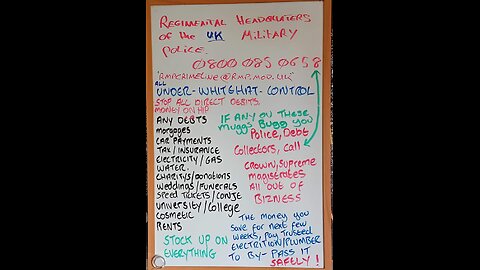 REGIMENTAL HEADQUATERS
OF THE UK MILITARY
POLICE.
0800 085 0658
"RMPCRIMELINE@RMP.MOD.UK"
ALL
UNDER-WHITEHAT-CONTROL
STOP ALL DIRECT DEBITS.
MONEY ON HP
ANY DEBTS
morgages
CAR PAYMENTS
TAX / INSURANCE
ELECTRICITY / GAS
WATER.
CHARITYS/DONATIONS
WEDDINGS/FUNERALS
SPEED TICKETS / CONJE
UNIVERSITY/College
COSMETIC
RENTS
IF ANY ON THESE
MUGGS, BUGG YOU
Police, Debt
Collectors, CALL
CROWN, SUPREME
magistrates
All OUT OF
BIZNESS
STOCK UP ON
EVERYTHING
THE MONEY YOU
SAVE FOR NEXT FEW
WEEKS, PAY TRUSTED
ELECTRITION/PLUMBER
TO BY-PASS IT
SAFELY!